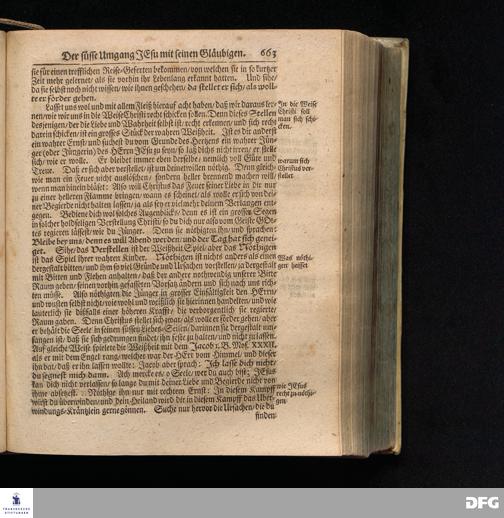 Der süsse Umgang JEsu mit seinen Gläubigen. 663
sie für einen trefflichen Reise-Geferten bekommen/ von welchen sie in so kurtzer
Zeit mehr gelernet/ als sie vorhin ihr Lebenlang erkannt hatten. Und sihe/
da sie selbst noch nicht wissen/ wie ihnen geschehen/ da stellet er sich/ als woll-
te er förder gehen.
Lasset uns wol und mit allem Fleiß hierauf acht haben/ daß wir daraus ler-
nen/ wie wir uns in die Weise Christi recht schicken sollen. Denn dieses Stellen
desjenigen/ der die Liebe und Wahrheit selbst ist/ recht erkennen/ und sich recht
darein schicken/ ist ein grosses Stück der wahren Weißheit. Ist es dir anderst
ein wahrer Ernst/ und suchest du vom Grunde des Hertzens ein wahrer Jün-
ger (oder Jüngerin) des HErrn JEsu zu seyn/ so laß dichs nicht irren/ er stelle
sich/ wie er wolle. Er bleibet immer eben derselbe/ nemlich voll Güte und
Treue. Daß er sich aber verstellet/ ist um deinetwillen nöthig. Denn gleich
wie man ein Feuer nicht auslöschen/ sondern heller brennend machen will/
wenn man hinein bläset: Also will Christus das Feuer seiner Liebe in dir nur
zu einer helleren Flamme bringen/ wann es scheinet/ als wolle er sich von dei-
ner Begierde nicht halten lassen/ ja als sey er viel mehr deinem Verlangen ent-
gegen. Bediene dich wol solches Augenblicks/ denn es ist ein grosser Segen
in solcher holdseligen Verstellung Christi/ so du dich nur also vom Geiste GOt-
tes regieren lässest/ wie die Jünger. Denn sie nöthigten ihn/ und sprachen:
Bleibe bey uns/ denn es will Abend werden/ und der Tag hat sich genei-
get. Sihe/ das Verstellen ist der Weißheit Spiel/ aber das Nöthigen
ist das Spiel ihrer wahren Kinder. Nöthigen ist nichts anders als einen
dergestalt bitten/ und ihm so viel Gründe und Ursachen vorstellen/ ja dergestalt
mit Bitten und Flehen anhalten/ daß der andere nothwendig unserer Bitte
Raum geben/ seinen vorhin gefasseten Vorsatz ändern und sich nach uns rich-
ten müsse. Also nöthigten die Jünger in grosser Einfältigkeit den HErrn/
und wusten selbst nicht/ wie wohl und weißlich sie hierinnen handelten/ und wie
lauterlich sie dißfalls einer höheren Krafft/ die verborgentlich sie regierte/
Raum gaben. Denn Christus stellet sich zwar/ als wolle er förder gehen/ aber
er behält die Seele in seinen süssen Liebes-Seilen/ darinnen sie dergestalt um-
fangen ist/ daß sie sich gedrungen findet/ ihn feste zu halten/ und nicht zu lassen.
Auf gleiche Weise spielete die Weißheit mit dem Jacob 1. B. Mos. XXXII.
als er mit dem Engel rang/ welcher war der HErr vom Himmel/ und dieser
ihn bat/ daß er ihn lassen wollte: Jacob aber sprach: Ich lasse dich nicht/
du segnest mich dann. Ach mercke es/ o Seele/ wer du auch bist; JEsus
kan dich nicht verlassen/ so lange du mit deiner Liebe und Begierde nicht von
ihme absetzest. Nöthige ihn nur mit rechtem Ernst: In diesem Kampff
wirst du überwinden/ und dein Heiland wird dir in diesem Kampff das Uber-
windungs-Kräntzlein gerne gönnen. Suche nur hervor die Ursachen/ die du
finden
In die Weise
Christi soll
man sich schi-
cken.
Warum sich
Christus ver-
stellet.
Was nöthi-
gen heisset
wie JEsus
recht zu nöthi-
gen.
FRANCKESCHE
STIFTUNGEN
DFG